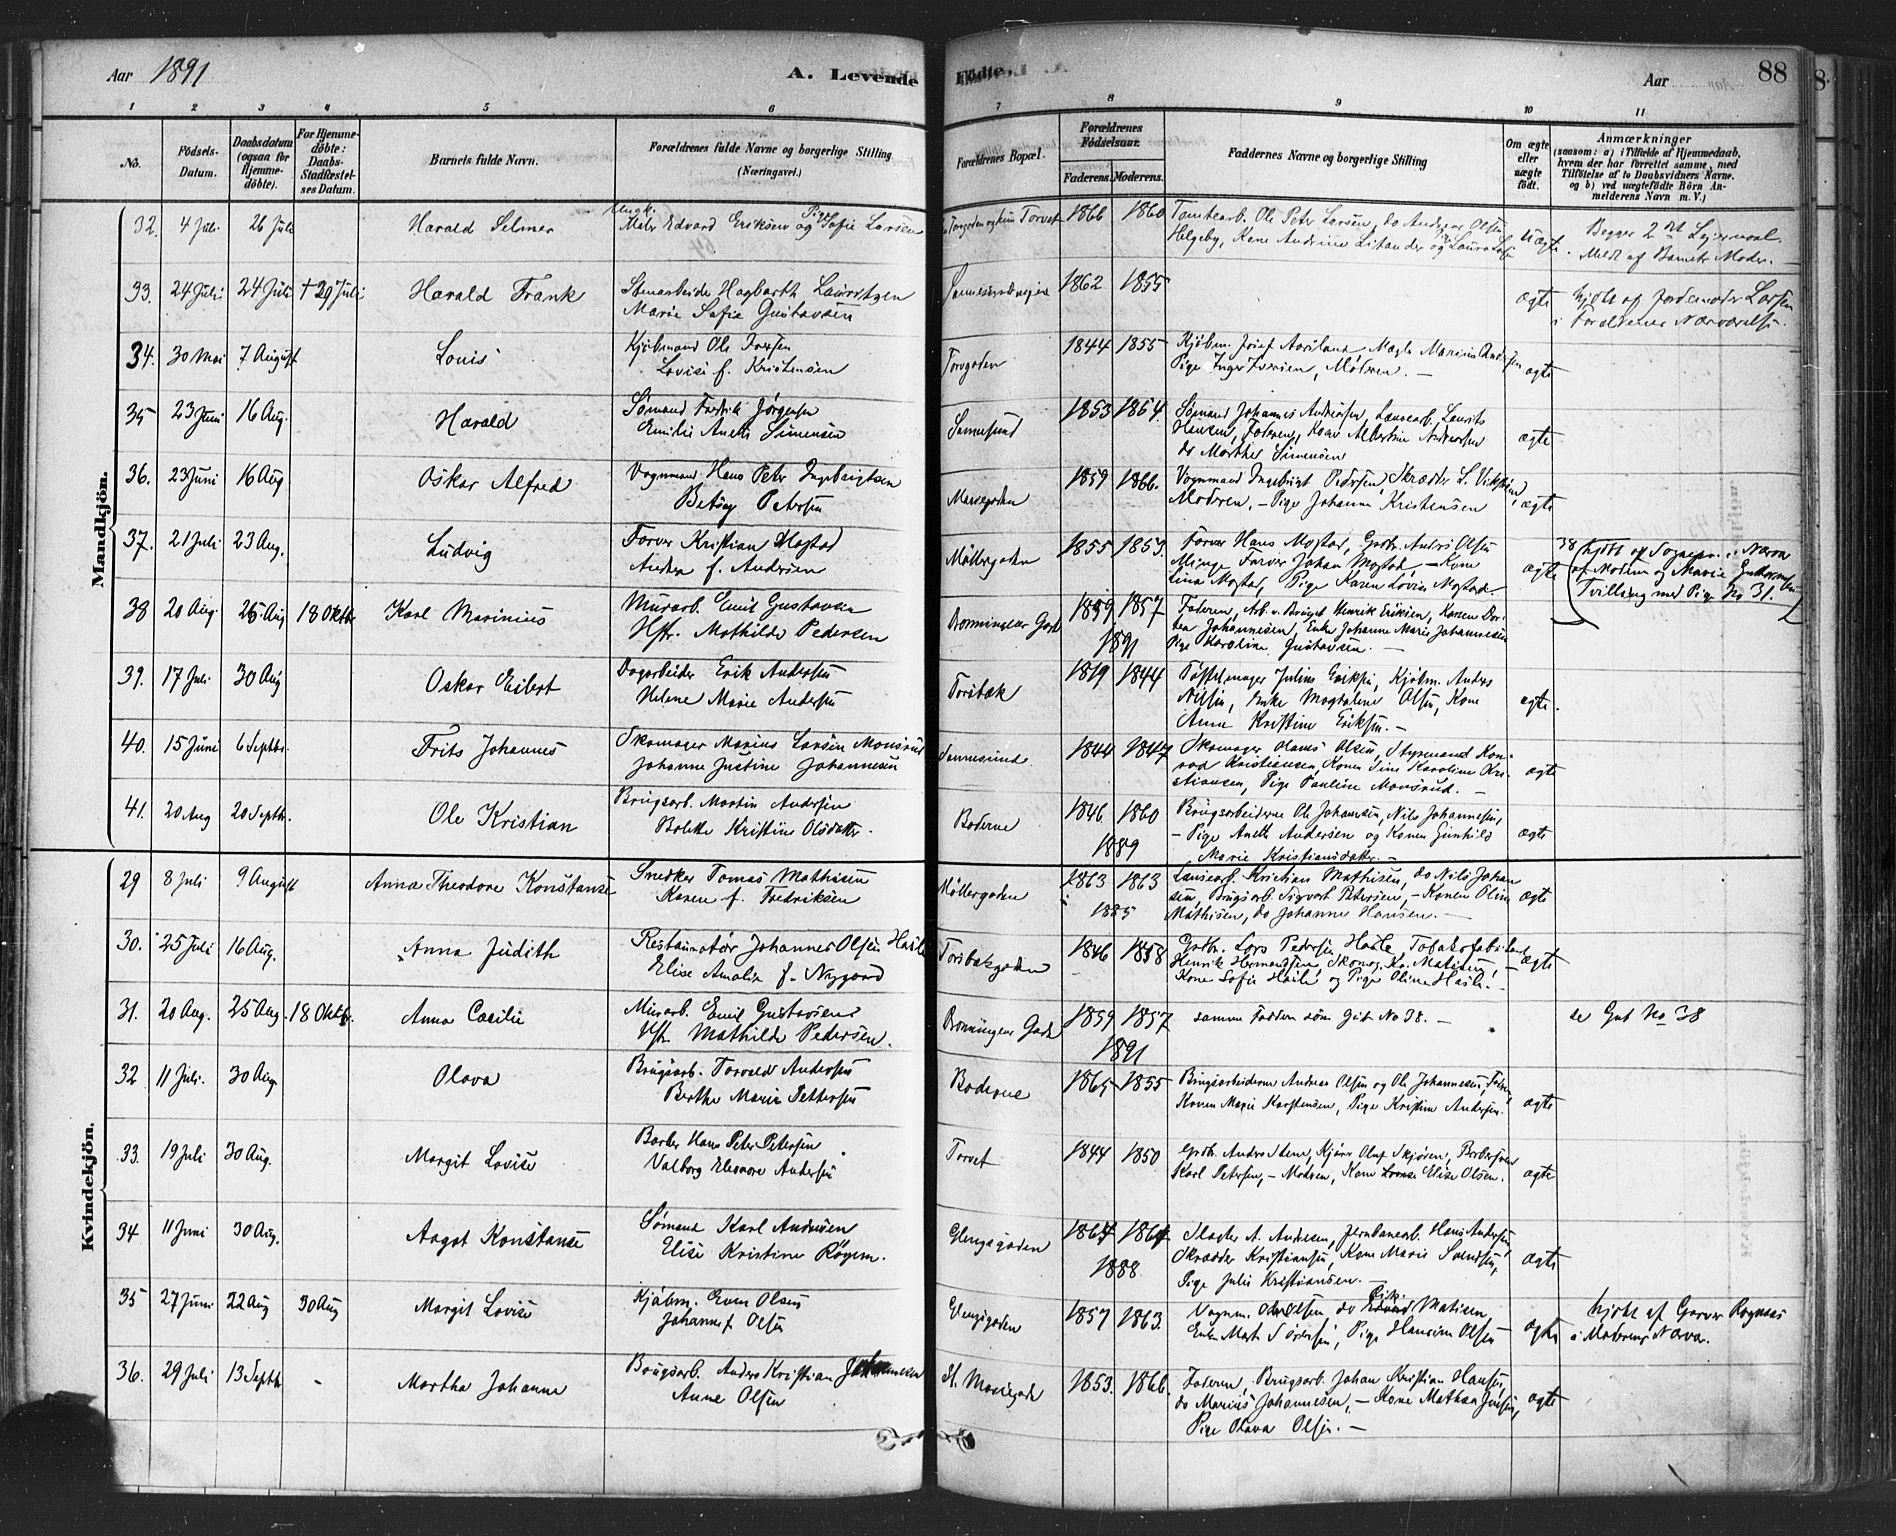 Aar 1891
A. Levende
Fødte.
Aar
88
1 2 3 4 5 6 7 8 9 10 11
No.
Fødsels-Datum.
Daabsdatum (ogsaa for Hjemmedøbte).
For Hjemmedøbte: Daabs-Stadfæstelses Datum.
Barnets fulde Navn.
Forældrenes fulde Navne og borgerlige Stilling (Næringsvei.)
Forældrenes Bopæl.
Forældrenes Fødselsaar.
Faderens. Moderens.
Faddernes Navne og borgerlige Stilling
Om ægte eller uægte født.
Anmærkninger
(saasom: a) i Tilfælde af Hjemmedaab, hvem der har forrettet samme, med Tilføielse af to Daabsvidners Navne. og b) ved uægtefødte Börn Anmelderens Navn m. V.)
Mandkjön.
32. 4 Juli 26 Juli Harald Selmer
Ungk. Maler Edvard Eriksen og Pige Sofie Larsen
Torvet 1866 1860
Tomtearb. Ole Peter Larsen, do Andreas Olsen
Helgeby, Kone Andrine og Laura
Uægte. Begges 2det Leiermaal.
Meldt af Barnets Moder.
33. 24 Juli 24 Juli † 29 Juli Harald Frank
Stenarbeider Hagbarth Lauritzen
Marie Sofie Gustavsen
1862 1855
ægte hjdbt af Jordemoder Larsen
i Forældrenes Nærværelse.
34. 30 Mai 7 August Louis
Kjøbmand Ole Iversen
Lovise f. Kristensen
Torvgaden 1844 1855
Kjøbm. Josef Marius
Pige Inger Iversen, Modren. —
ægte
35 23 Juni 16 Aug. Harald
Sømand Fredrik Jørgensen
Emilie Anette Simensen
Sannesund 1853 1864.
Sømand Johannes Andersen, Laurits
Hansen, Faderen, Kone Albertine Andersen
do Marthe Simensen
ægte
36. 23 Juni 16 Aug. Oskar Alfred
Vognmand Hans Peter Ingebrigtsen
Betsy Petersen
Mariegaden 1859 1866.
Vognmand Ingebrigt Pedersen Skrædder L.
Modren, — Pige Johanne Kristensen
ægte
37. 21 Juli 23 Aug. Ludvig
Farver Kristian Mostad
Anthea f. Andersen
Møllergaden 1855 1853.
Farver Hans Mostad, Gaardbr. Anders Olsen
Minge Farver Johan Mostad, — Kone
Lina Mostad, Pige Karen Lovise Mostad
ægte
38 20 Aug. 25 Aug 18 Oktbr Karl Marinius
Murarb. Emil Gustavsen
Hstr. Mathilde Pedersen
1859 1857
1891
Faderen, Arb. v. Bruget Henrik Eriksen, Konen Dorthea Johannesen, Enke Johanne Marie Johannesen
Pige Karoline Gustavsen. —
38 hjdbt af Sogne Nærv.
af Modren og Marie
Tvilling med Pige No 31.
39. 17 Juli 30 Aug Oskar Eilert
Dagarbeider Erik Andersen
Helene Marie Andersen
Torsbæk 1819 1844
Julius Eriksen, Kjøbm. Anders
Nilsen, Enke Magdalene Olsen, Kone
Anne Kristine Eriksen. —
ægte.
40. 15 Juni 6 Septbr. Frits Johannes
Skomager Marius Larsen Monsrud
Johanne Justine Johannesen
Sannesund 1844 1847
Skomager Olaves Olsen, Styrmand Konrad Kristiansen, Konen Sine Karoline Kristiansen, Pige Pauline Monsrud. —
ægte
41. 20 Aug 20 Septbr. Ole Kristian
Brugsarb. Martin Andersen
Bolette Kristine Olsdatter.
Boderne 1846 1860
1889
Brugsarbeiderne Ole Johansen, Nils Johannesen,
— Pige Anette Andersen og Konen Gunhild
Marie Kristiansdatter. —
ægte
Kvindekjön.
29 8 Juli 9 August Anna Theodore Konstanse
Snedker Tomas Mathisen
Karen f. Fredriksen
Møllergaden 1863 1863
1885
Kristian Mathisen, do Nils Johansen, Brugsarb. Sigvart Petersen, — Konen Oline
Mathisen, do Johanne Hansen. —
ægte
30. 25 Juli 16 Aug. Anna Judith
Restauratør Johannes Olsen Hasle
Elise Amalie f. Nygaard
Torsbækgaden 1846 1858
Gaardbr. Lars Pedersen Hasle, Tobaksfabrikant
Henrik Hermandsen, Skomag. Kr. Matisen, —
Kone Sofie Hasle og Pige Oline Hasle. —
ægte
31. 20 Aug. 25 Aug. 18 Oktbr. Anna Cæcilie
Murarb. Emil Gustavsen
Hstr. Mathilde Pedersen.
1859 1857
1891
samme Faddere som Gut No 38. —
se Gut No 38
32 11 Juli. 30 Aug. Olava
Brugsarb. Torvald Andersen
Berthe Marie Pettersen
Boderne 1865 1855
Brugsarbeiderne Andreas Olsen og Ole Johannesen,
Konen Marie Karstensen, Pige Kristine Andersen.
ægte
33. 19 Juli 30 Aug. Margit Lovise
Barber Hans Peter Petersen
Valborg Eleonore Andersen
Torvet 1844 1850
Gaardbr. Anders Stene, Olaf Skjøren,
Karl Petersen, — Modren, Kone Elise Olsen.
ægte
34 11 Juni 30 Aug. Aagot Konstanse
Sømand Karl Andersen
Elise Kristine Røyem.
Glengsgaden 1864 1864
1888
Slagter A. Andersen, Jernbanearb. Hans Andersen,
Skrædder Kristiansen, Kone Marie Svendsen,
Pige Julie Kristiansen. —
ægte
35 27 Juni 22 Aug 30 Aug Margit Lovise
Kjøbm. Even Olsen
Johanne f. Olsen
Glengsgaden 1857 1863.
Vognm. Olsen do Matisen
Enke Sørensen, Pige Hansine Olsen
ægte hjdbt af Garver Rognaas
i Moderens Nærv.
36. 29 Juli 13 Septbr - Martha Johanne
Brugsarb. Anders Kristian Johannesen
Anne Olsen
St. Mariegade 1853. 1866.
Faderen, Brugsarb. Johan Kristian Hansen,
do Marius Johannesen, — Kone Mathea Jensen,
Pige Olava Olsen. —
ægte